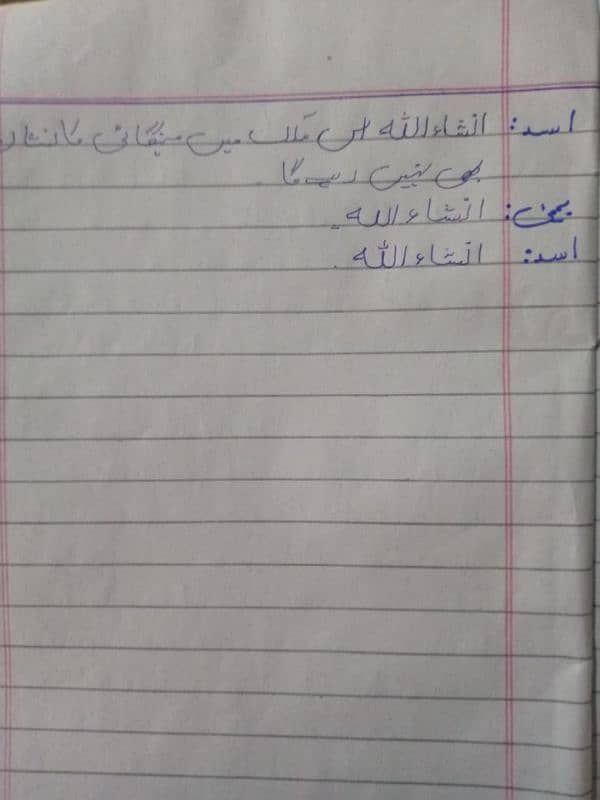 اسد: انشاءاللہ اس ملک میں مہنگائی کا نشان
بھی نہیں رہے گا۔
یمنی: انشاءاللہ۔
اسد: انشاءاللہ۔